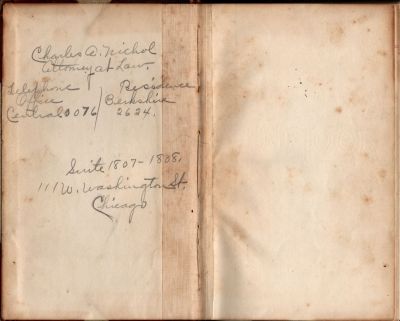 Charles A. Nichol
Attorney at Law.
Telephone Residence
Office / Berkshire
Central 0076 / 2624.
Suite 1807-1808,
111 W. Washington St.
Chicago